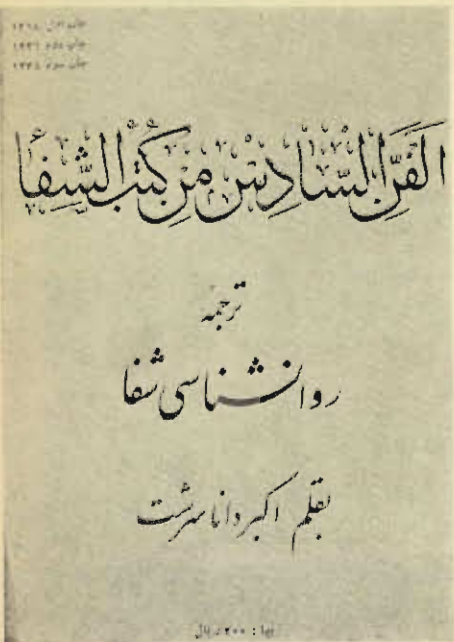 چاپ اول ۱۳۱۸
چاپ دوم ۱۳۳۱
چاپ سوم ۱۳۴۸
الفَنُّ السّادِسُ مِن كُتُبِ الشِّفَاْ
ترجمه
روانشناسی شفا
بقلم اکبر داناسرشت
بها : ۲۰۰ ریال